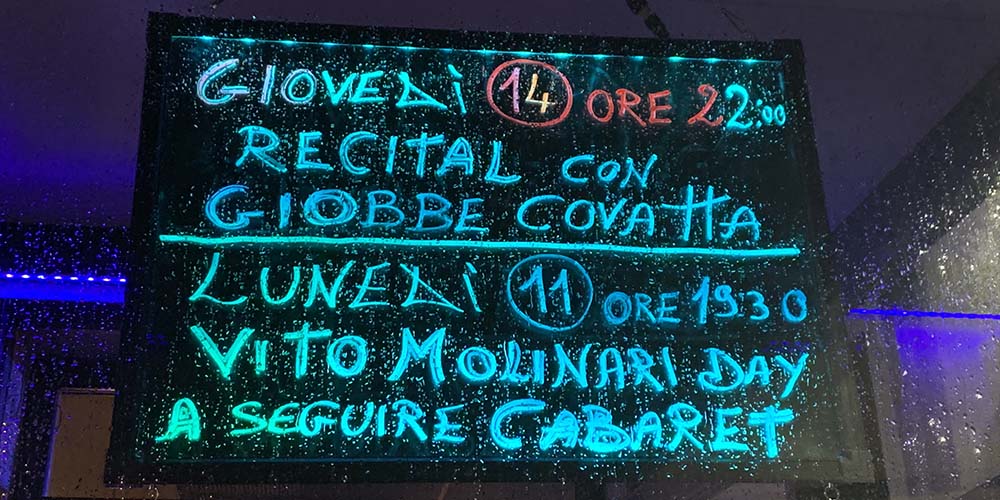 GIOVEDÌ 14 ORE 22:00
RECITAL CON
GIOBBE COVATTA
LUNEDÌ 11 ORE 1930
VITO MOLINARI DAY
A SEGUIRE CABARET